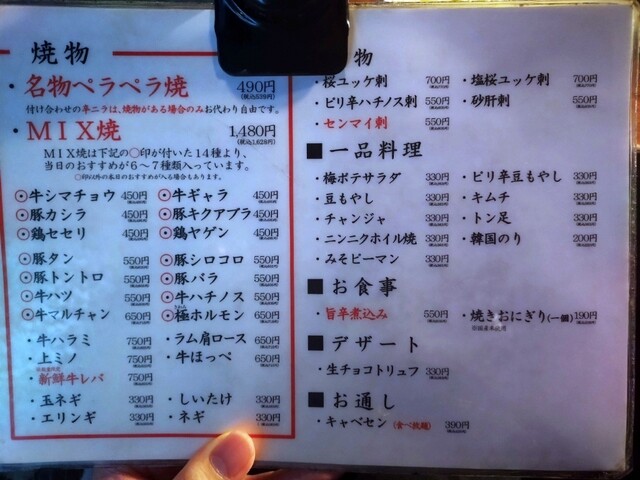 焼物
・名物ペラペラ焼 490円
付け合わせの辛ニラは、焼物がある場合のみお代わり自由です。
・MIX焼 1,480円
(税込1,628円)
MIX焼は下記の○印が付いた14種より、
当日のおすすめが6~7種類入っています。
○印以外の本日のおすすめが入る場合もあります。
◉牛シマチョウ 450円 ◉牛ギャラ 450円
◉豚カシラ 450円 ◉豚キクアブラ 450円
◉鶏セセリ 450円 ◉鶏ヤゲン 450円
◉豚タン 550円 ◉豚シロコロ 550円
◉豚トントロ 550円 ◉豚バラ 550円
◉牛ハツ 550円 ◉牛ハチノス 550円
◉牛マルチャン 650円 ◉極ホルモン 650円
・牛ハラミ 750円 ・ラム肩ロース 650円
・上ミノ 750円 ・牛ほっぺ 650円
・新鮮牛レバ 750円
・玉ネギ 330円 ・しいたけ 330円
・エリンギ 330円 ・ネギ 330円
物
・桜ユッケ刺 700円 ・塩桜ユッケ刺 700円
・ピリ辛ハチノス刺 550円 ・砂肝刺 550円
・センマイ刺 550円
■一品料理
・梅ポテサラダ 330円 ・ピリ辛豆もやし 330円
・豆もやし 330円 ・キムチ 330円
・チャンジャ 330円 ・トン足 330円
・ニンニクホイル焼 330円 ・韓国のり 200円
・みそピーマン 330円
■お食事
・旨辛煮込み 550円 ・焼きおにぎり(一個) 190円
■デザート
・生チョコトリュフ 330円
■お通し
・キャベセン (食べ放題) 390円